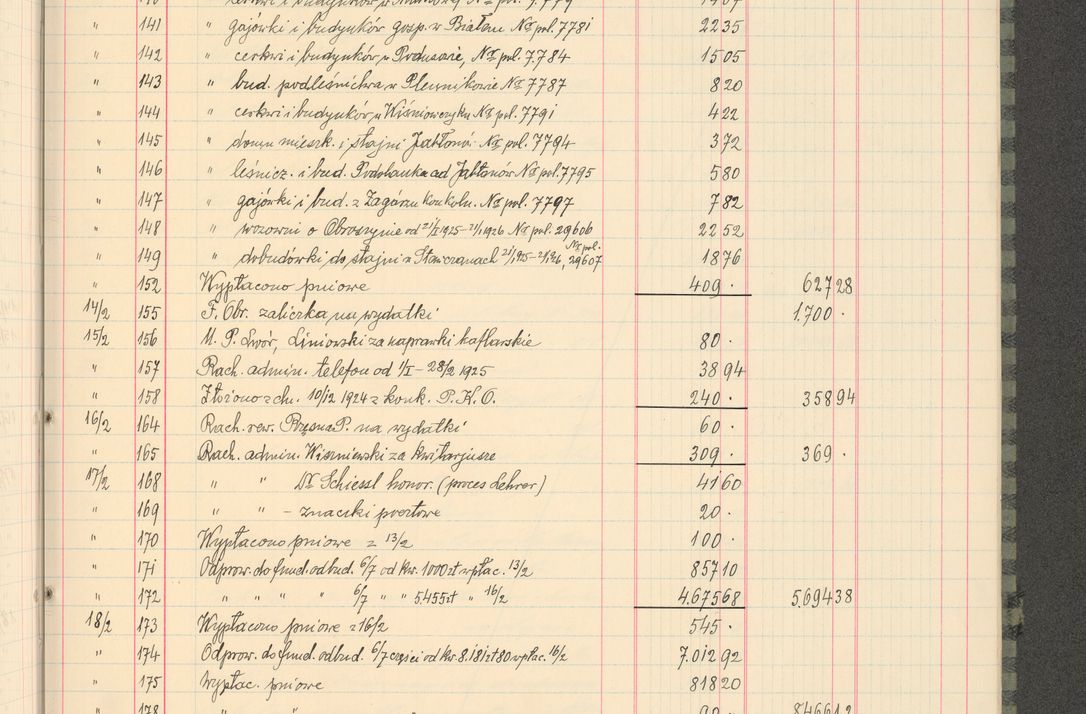 " 141 " gajówki i budynków gosp. w Białem № pol. 7781 22 35
" 142 " cerkwi i budynków w Podusowie, № pol. 7.784 15 05
" 143 " bud. podleśnictwa w Pleunikowie № 7787 8 20
" 144 " cerkwi i budynków w Wiśniowczyku № pol. 7791 4 22
" 145 " domu mieszk. i stajni Jabłonów № pol. 7794 3 72
" 146 " leśnicz. i bud. Podsłanka ad Jabłonów № pol. 7795 5 80
" 147 " gajówki i bud. z Zagórzu Konkoln. № pol. 7797 7 82
" 148 " wozowni o Obroszynie od 21/I 1925 – 21/1 1926 № pol. 29606 22 52
" 149 " dobudówki do stajni w Stawczanach 21/1 1925 – 21/1 926, № pol. 29607 18 76
" 152 Wypłacono pniowe 409 · 627 28
14/2 155 F. Obr. zaliczka na wydatki 1.700 ·
15/2 156 M. P. Lwór, Liniowski za naprawki kaflarskie 80 ·
" 157 Rach. admin. telefon od 1/I – 28/2 1925 38 94
" 158 Złożono z dn. 10/12 1924 z konk. P. K. O. 240 · 358 94
16/2 164 Rach. rew. Brzsna P. na wydatki 60 ·
" 165 Rach. admin. Wiszniewski za kwitarjusze 309 · 369 ·
17/2 168 " " Dr Schiessl honor. (proces Lehrer) 41 60
" 169 " " – znaczki pocztowe 20 ·
" 170 Wypłacono pniowe z 13/2 100 ·
" 171 Odprow. do fund. odbud. 6/7 od kw. 1000 zł wpłac. 13/2 857 10
" 172 " " " " 6/7 " " 5.455 zł " 16/2 4.675 68 5.694 38
18/2 173 Wypłacono pniowe z 16/2 545 ·
" 174 Odprow. do fund. odbud. 6/7 części od kw. 8.181 zł 80 wpłac. 16/2 7.012 92
" 175 Wypłac. pniowe 818 20
" 178 " " 90 · 8466 12